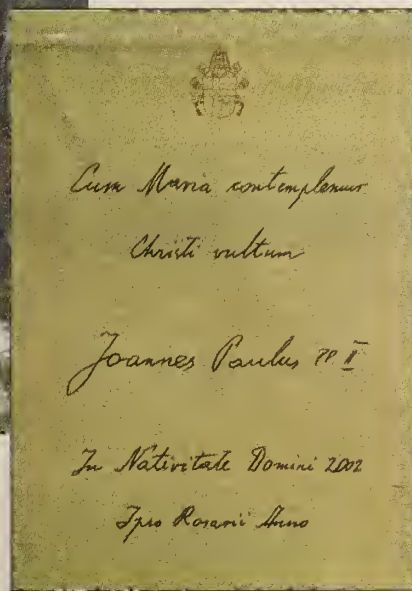 Cum Maria contemplemur
Christi vultum
Joannes Paulus PP II
In Nativitate Domini 2002
Ipso Rosarii Anno